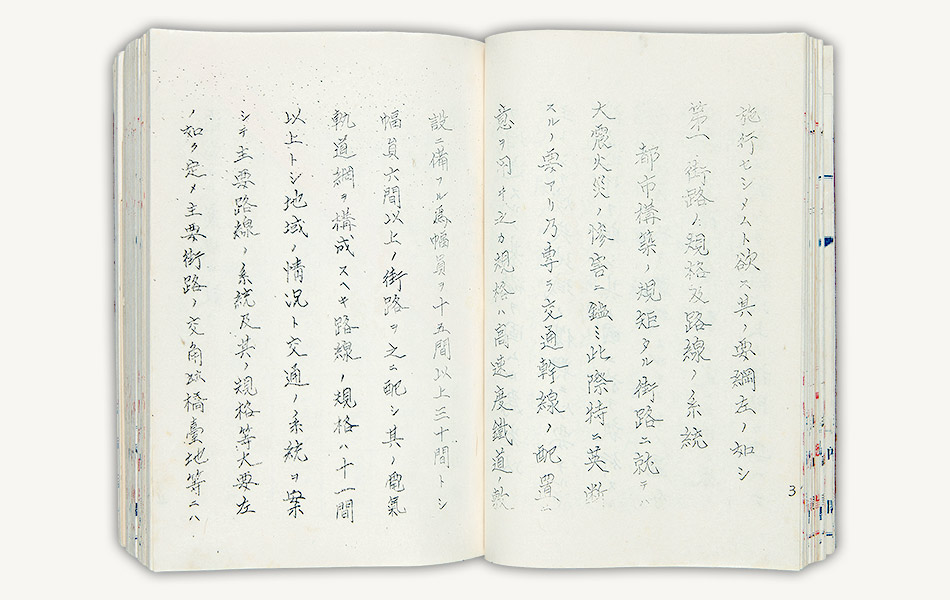 施行セシメムト欲ス其ノ要綱左ノ如シ
第一 街路ノ規格及路線ノ系統
都市構築ノ規矩タル街路ニ就テハ
大震火災ノ惨害ニ鑑ミ此際特ニ英断
スルノ要アリ乃専ラ交通幹線ノ配置ニ
意ヲ用ヰ之カ規格ハ高速度鐵道ノ敷
設ニ備フル為幅員ヲ十五間以上三十間トシ
幅員六間以上ノ街路ヲ之ニ配シ其ノ電氣
軌道網ヲ構成スヘキ路線ノ規格ハ十一間
以上トシ地域ノ情況ト交通ノ系統ヲ案
シテ主要路線ノ系統及其ノ規格等大要左
ノ如ク定メ主要街路ノ交角並橋臺地等ニハ
3